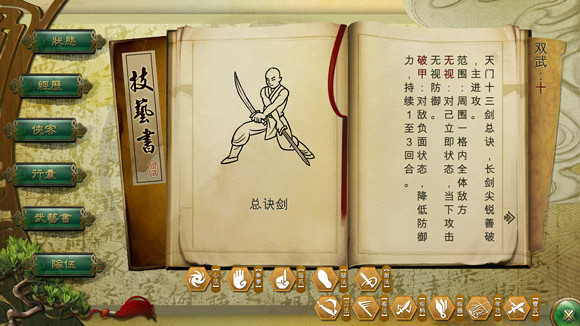 狀態
經歷
俠客
行囊
武藝書
隊伍
技藝書
总诀剑
双武:十
天门十三剑总诀,长剑尖锐善破
,主进攻。
范围:周围一格内全体敌方
无视:对己立即状态,当下攻击
无视防御。
破甲:对敌负面状态,降低防御
力,持续1至3回合。